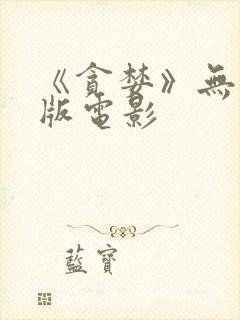 《貪婪》無
版電影
藍寶